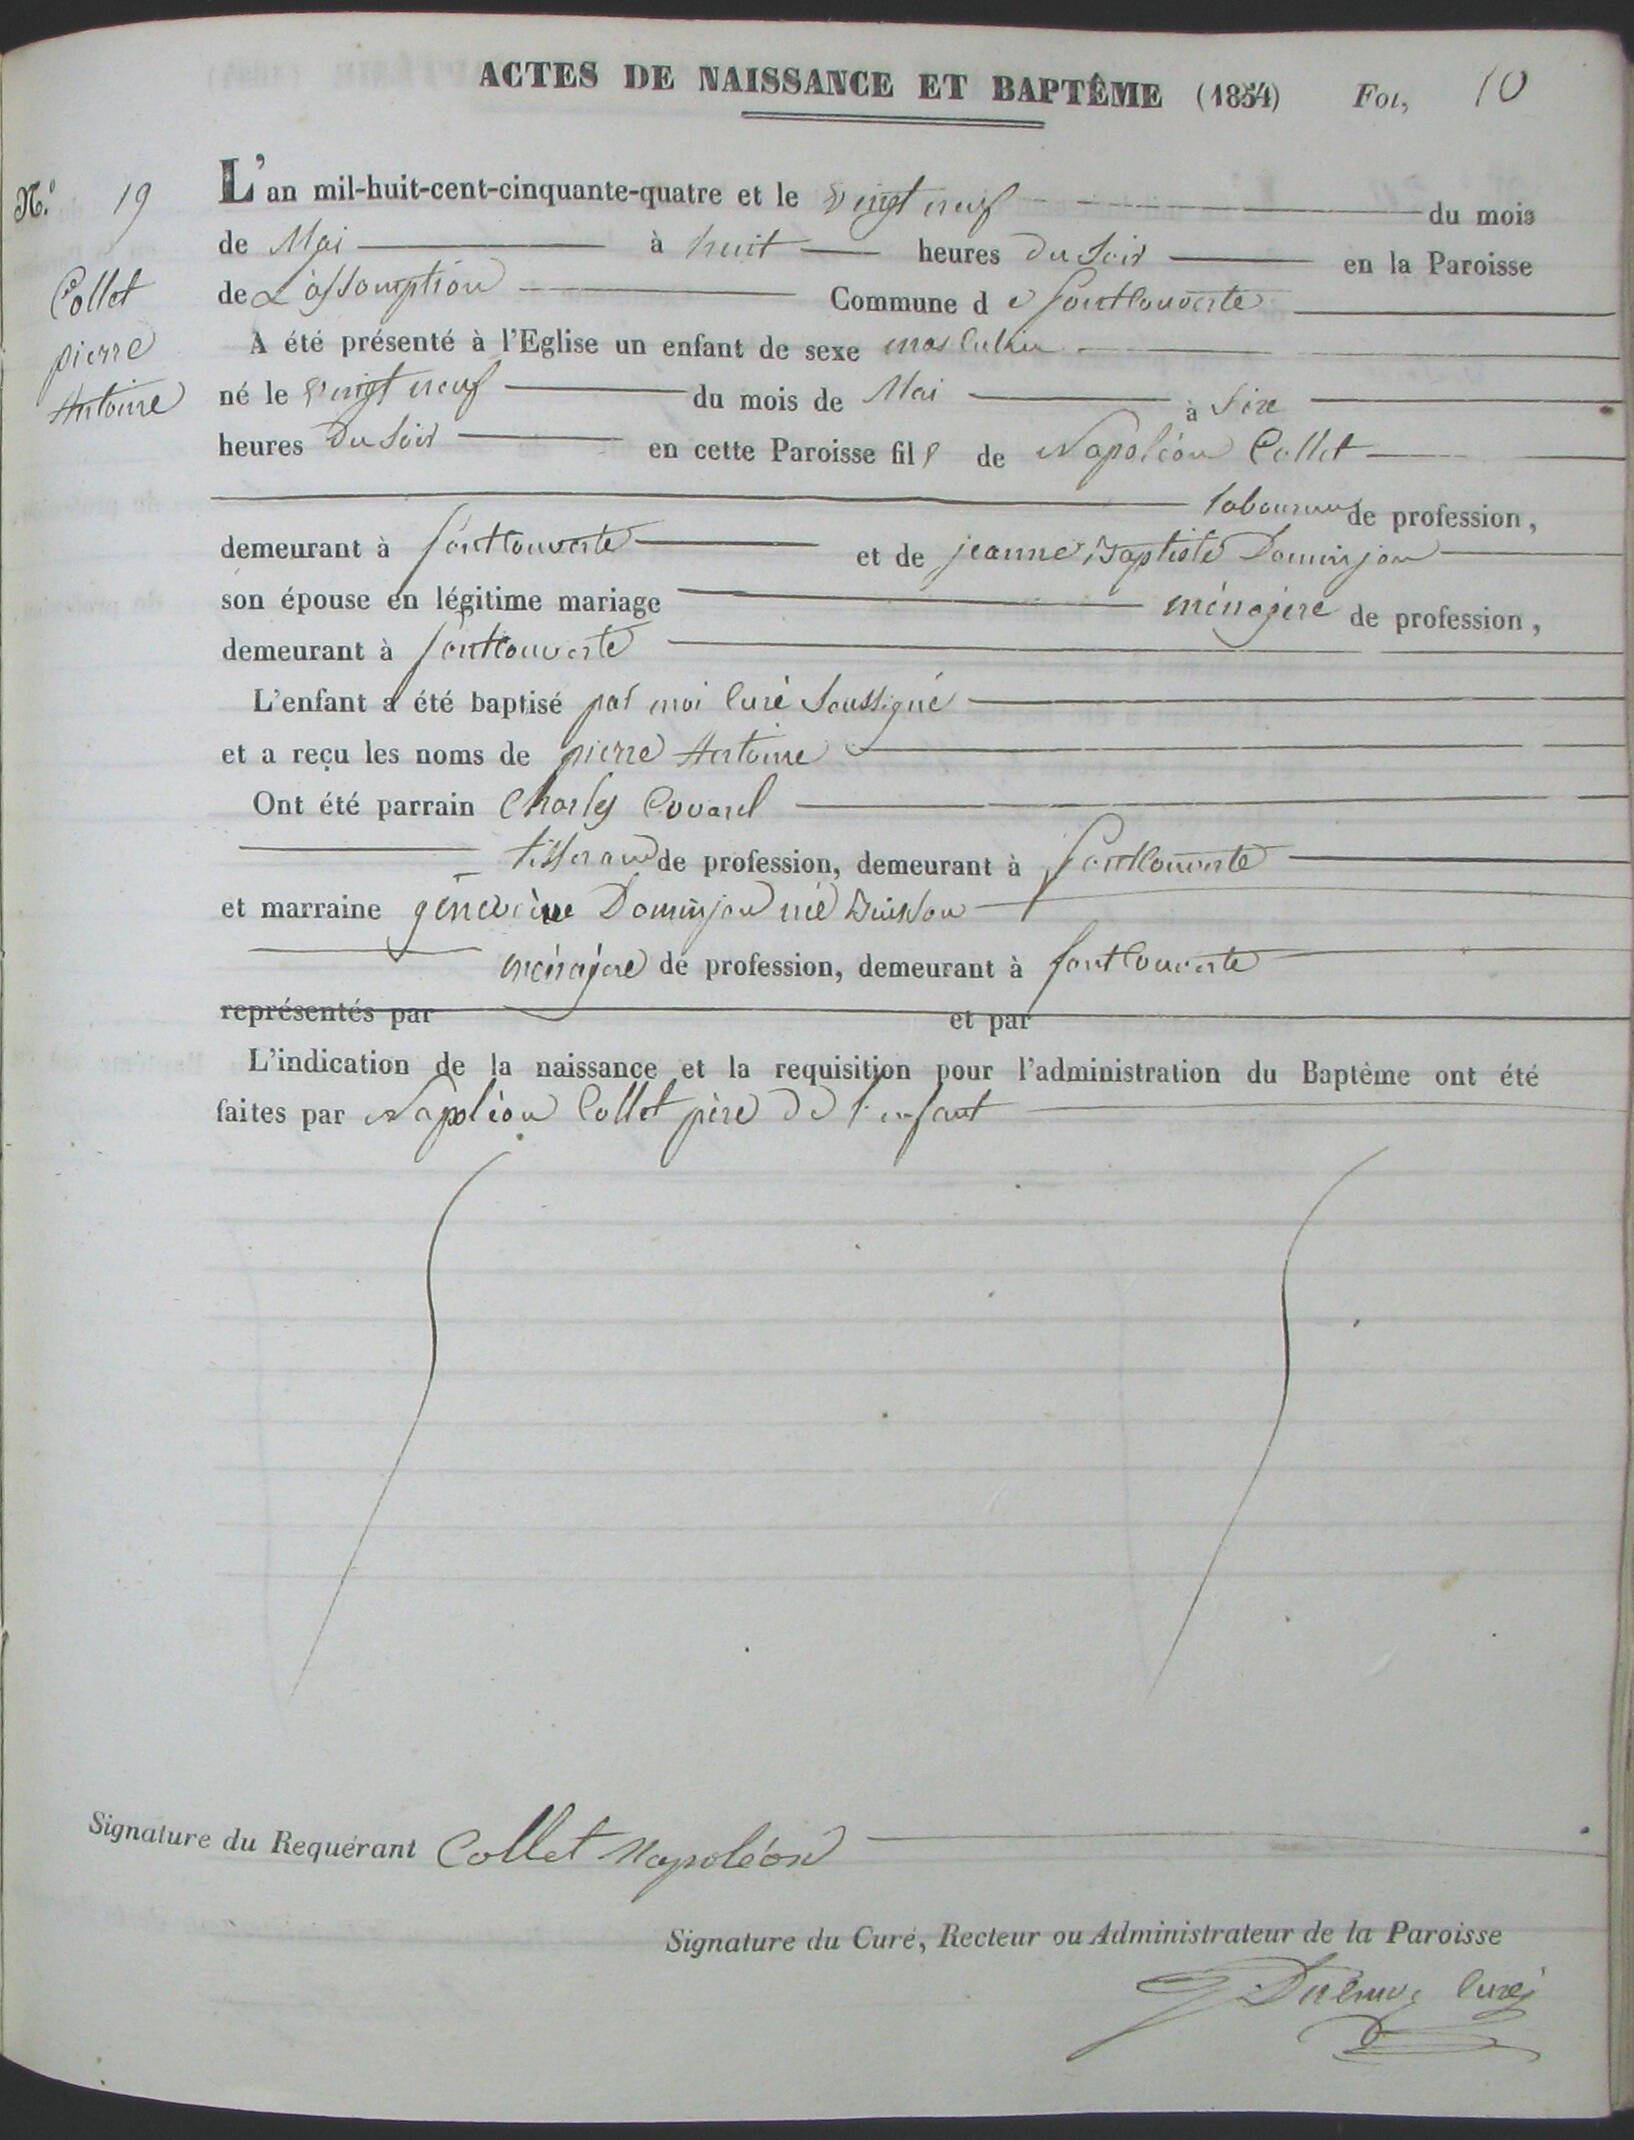 ACTES DE NAISSANCE ET BAPTÊME (1854) Fol, 10
N.º 19
Collet
pierre
Antoine
L'an mil-huit-cent-cinquante-quatre et le vingt neuf du mois
de Mai à huit heures du soir en la Paroisse
de L'assomption Commune de fontcouverte
A été présenté à l'Eglise un enfant de sexe masculin
né le vingt neuf du mois de Mai à six
heures du soir en cette Paroisse fils de Napoléon Collet
laboureur de profession,
demeurant à fontcouverte et de jeanne Baptiste Dominjon
son épouse en légitime mariage ménagère de profession,
demeurant à fontcouverte
L'enfant a été baptisé par moi Curé soussigné
et a reçu les noms de pierre Antoine
Ont été parrain Charles Covarel
tisserand de profession, demeurant à fontcouverte
et marraine génevieve Dominjon née Buisson
ménagère de profession, demeurant à fontcouverte
représentés par et par
L'indication de la naissance et la requisition pour l'administration du Baptême ont été
faites par Napoléon Collet père de l'enfant
Signature du Requérant Collet Napoléon
Signature du Curé, Recteur ou Administrateur de la Paroisse
Curé